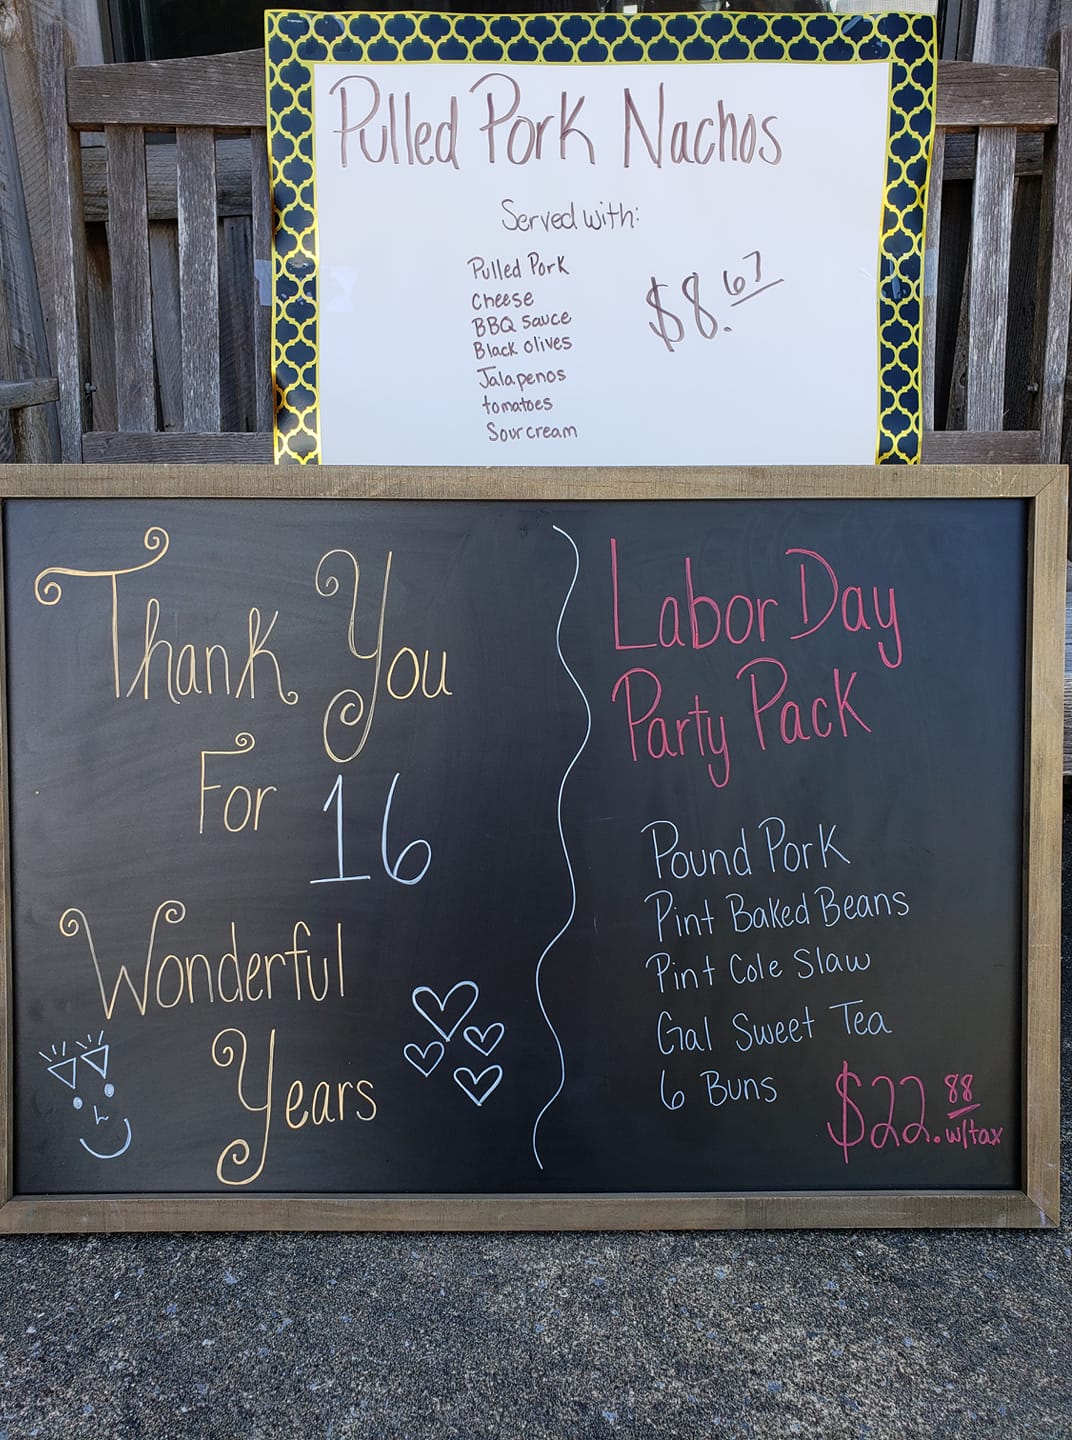 Pulled Pork Nachos
Served with:
Pulled Pork
Cheese
BBQ Sauce
Black olives
Jalapenos
tomatoes
Sour cream
$8.67
Thank You
For 16
Wonderful
Years
Labor Day
Party Pack
Pound Pork
Pint Baked Beans
Pint Cole Slaw
Gal Sweet Tea
6 Buns
$22.88
w/tax